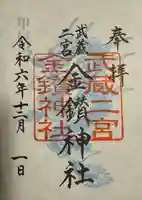 奉拝
武蔵
二宮
金鑚神社
武蔵二宮
金鑚神社
令和六年十二月一日